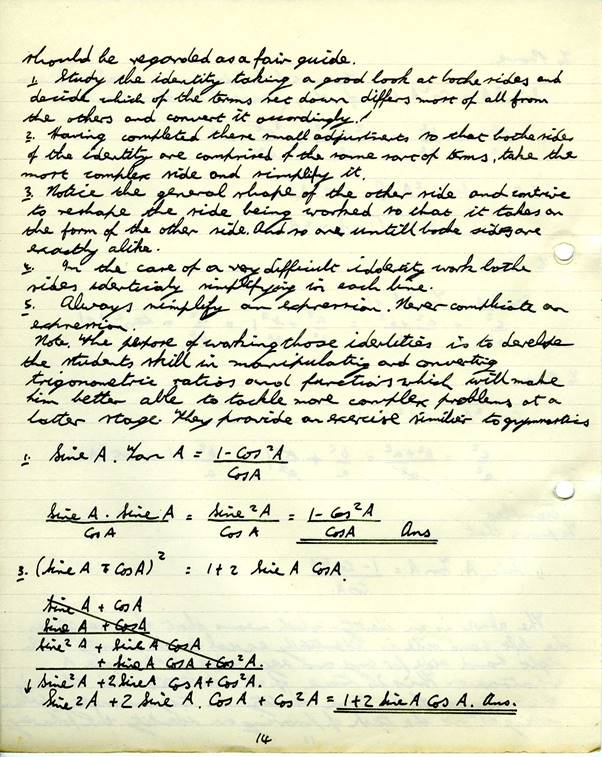 should be regarded as a fair guide.
1. Study the identity taking a good look at bothe sides and
decide which of the terms set down differs most of all from
the others and convert it accordingly.
2. Having completed these small adjustments so that bothe sides
of the identity are comprised of the same sort of terms, take the
most complex side and simplify it.
3. Notice the general shape of the other side and contrive
to reshape the side being worked so that it takes on
the form of the other side. And so are untill bothe sides are
exactly alike.
4. In the case of a very difficult iddentity work bothe
sides identicaly simplifying in each line.
5. Always simplify an expression. Never complicate an
expression.
Note. The purpose of working those identities is to develope
the students skill in manipulating and converting
trigonometric ratios and functions which will make
him better able to tackle more complex problems at a
latter stage. They provide an exercise similier to gymnastics
1. Sine A . Tan A = 1 - Cos²A / Cos A
Sine A . Sine A / Cos A = Sine²A / Cos A = 1 - Cos²A / Cos A Ans
3. (Sine A + Cos A)² = 1 + 2 Sine A Cos A.
Sine A + Cos A
Sine A + Cos A
Sine² A + Sine A Cos A
+ Sine A Cos A + Cos²A.
↓ Sine²A + 2 Sine A Cos A + Cos²A.
Sine 2A + 2 Sine A . Cos A + Cos²A = 1 + 2 Sine A Cos A. Ans.
14